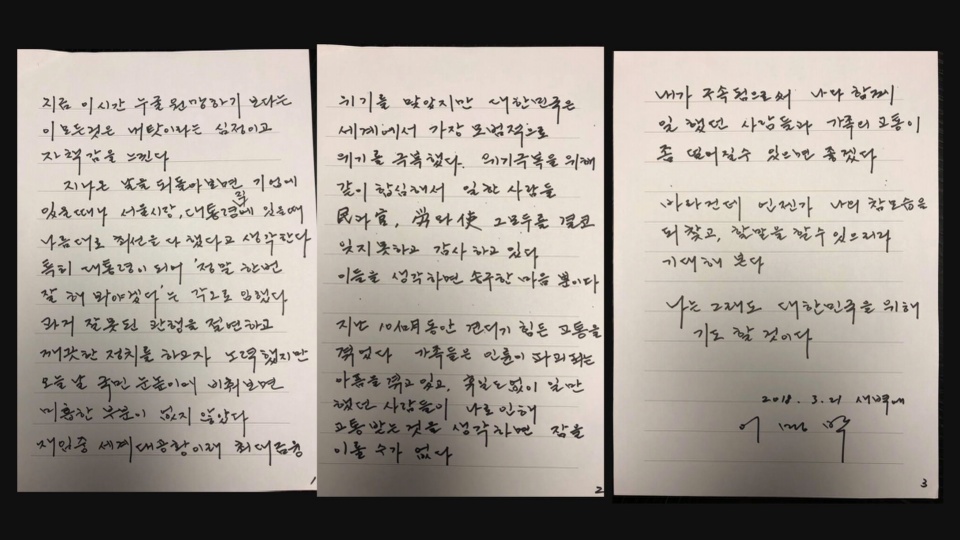 지금 이시간 누굴 원망하기 보다는
이 모든것은 내탓이라는 심정이고
자책감을 느낀다
지나온 날을 되돌아보면 기업에
있을때나 서울시장, 대통령직에 있을때
나름대로 최선을 다했다고 생각한다
특히 대통령이 되어 '정말 한번
잘 해 봐야겠다'는 각오로 임했다
과거 잘못된 관행을 절연하고
깨끗한 정치를 하고자 노력했지만
오늘날 국민 눈높이에 비춰보면
미흡한 부분이 없지 않았다
재임중 세계대공황이래 최대금융
1
위기를 맞았지만 대한민국은
세계에서 가장 모범적으로
위기를 극복했다. 위기극복을 위해
같이 합심해서 일한 사람들
民과 官, 勞와 使 그모두를 결코
잊지못하고 감사하고 있다
이들을 생각하면 송구한 마음 뿐이다
지난 10개月동안 견디기 힘든 고통을
겪었다 가족들은 인륜이 파괴되는
아픔을 겪고 있고, 휴일도 없이 일만
했던 사람들이 나로 인해
고통받는것을 생각하면 잠을
이룰 수가 없다
2
내가 구속됨으로써 나와 함께
일했던 사람들과 가족의 고통이
좀 덜어질수 있으면 좋겠다
바라건데 언젠가 나의 참모습을
되찾고, 할말을 할수 있으리라
기대해 본다
나는 그래도 대한민국을 위해
기도 할 것이다
2018. 3. 21 새벽에
이 명 박
3